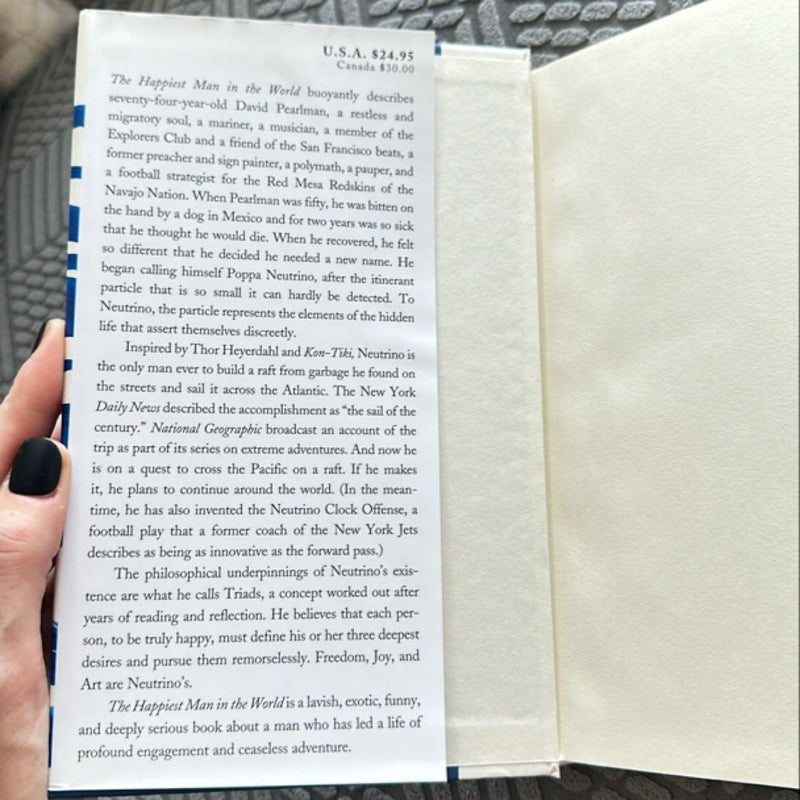 U.S.A. $24.95
Canada $30.00
The Happiest Man in the World buoyantly describes
seventy-four-year-old David Pearlman, a restless and
migratory soul, a mariner, a musician, a member of the
Explorers Club and a friend of the San Francisco beats, a
former preacher and sign painter, a polymath, a pauper, and
a football strategist for the Red Mesa Redskins of the
Navajo Nation. When Pearlman was fifty, he was bitten on
the hand by a dog in Mexico and for two years was so sick
that he thought he would die. When he recovered, he felt
so different that he decided he needed a new name. He
began calling himself Poppa Neutrino, after the itinerant
particle that is so small it can hardly be detected. To
Neutrino, the particle represents the elements of the hidden
life that assert themselves discreetly.
Inspired by Thor Heyerdahl and Kon-Tiki, Neutrino is
the only man ever to build a raft from garbage he found on
the streets and sail it across the Atlantic. The New York
Daily News described the accomplishment as “the sail of the
century.” National Geographic broadcast an account of the
trip as part of its series on extreme adventures. And now he
is on a quest to cross the Pacific on a raft. If he makes
it, he plans to continue around the world. (In the mean-
time, he has also invented the Neutrino Clock Offense, a
football play that a former coach of the New York Jets
describes as being as innovative as the forward pass.)
The philosophical underpinnings of Neutrino’s exis-
tence are what he calls Triads, a concept worked out after
years of reading and reflection. He believes that each per-
son, to be truly happy, must define his or her three deepest
desires and pursue them remorselessly. Freedom, Joy, and
Art are Neutrino’s.
The Happiest Man in the World is a lavish, exotic, funny,
and deeply serious book about a man who has led a life of
profound engagement and ceaseless adventure.